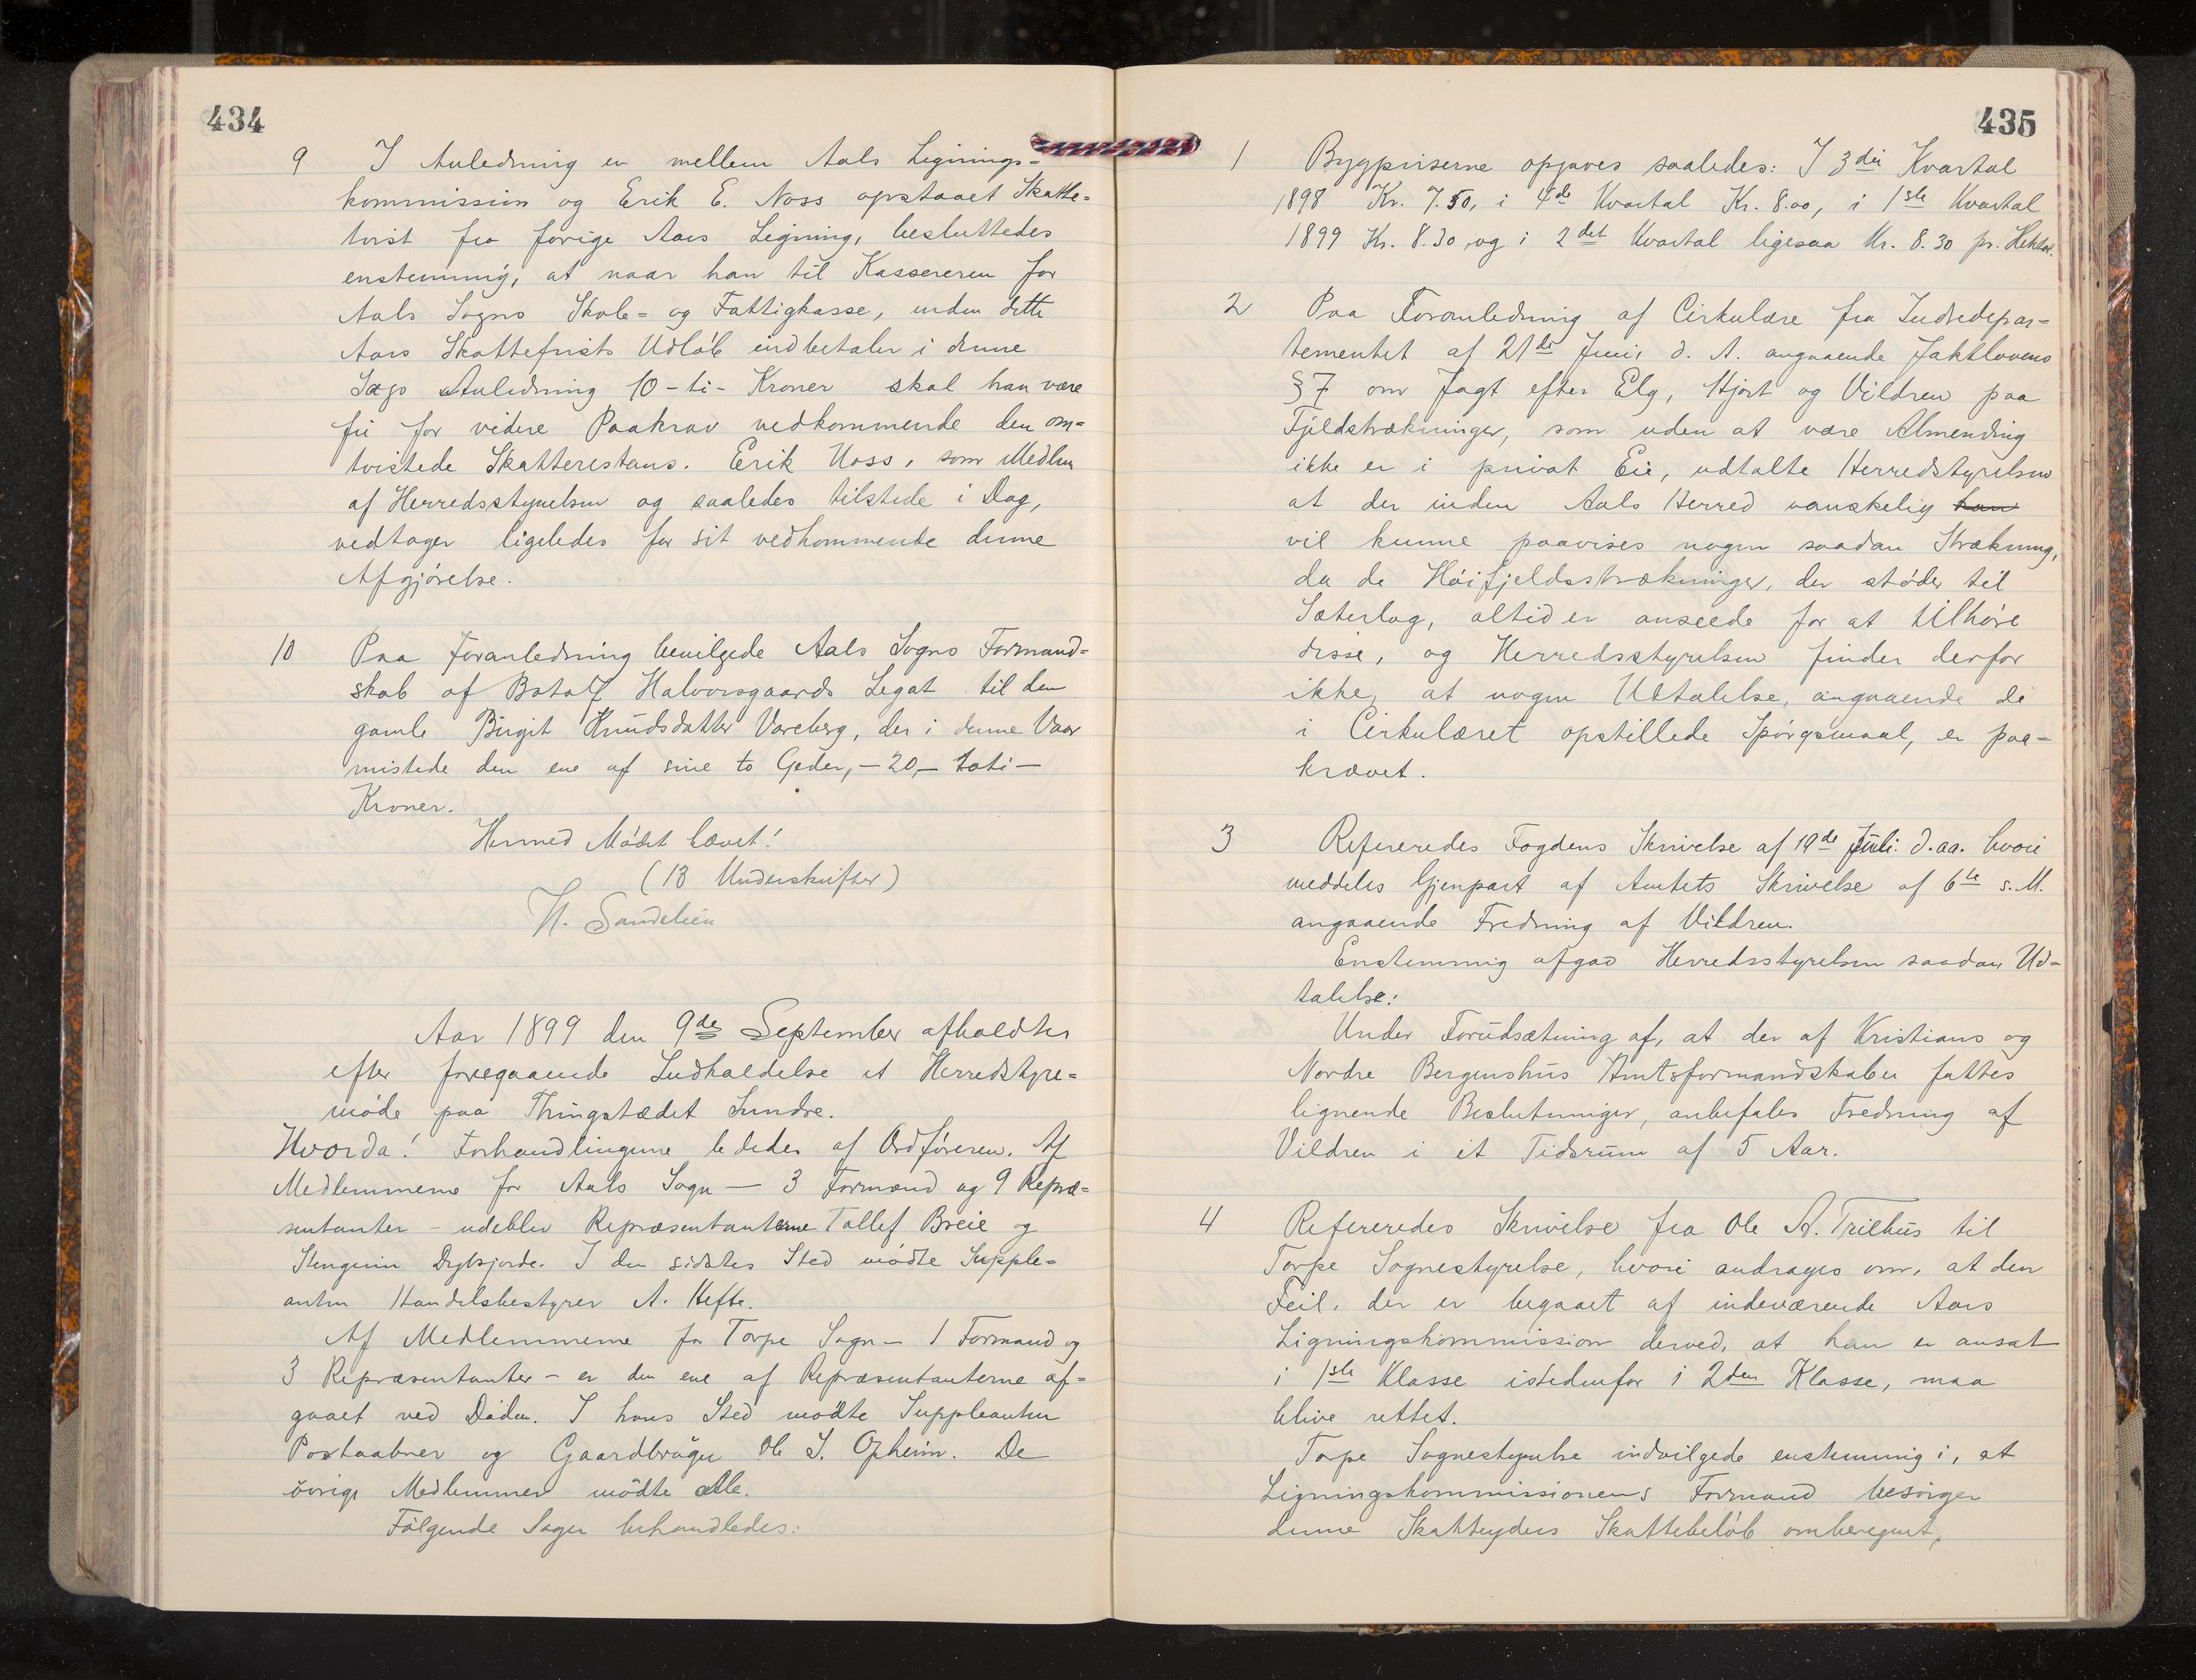 434
9 I Anledning en mellem Aals Lignings=
kommission og Erik E. Noss opstaaet Skatte=
tvist fra forrige Aars Ligning, besluttedes
enstemmig, at naar han til Kassereren for
Aals Sogns Skole= og Fattigkasse, inden dette
Aars Skattefrists Udløb indbetaler i denne
Sags Anledning 10-ti- Kroner skal han være
fri for videre Paakrav vedkommende den om=
tvistede Skatterestans. Erik Noss, som Medlem
af Herredsstyrelsen og saaledes tilstede i Dag,
vedtager ligeledes for sit vedkommende denne
Afgjørelse.
10 Paa Foranledning bevilgede Aals Sogns Formand=
skab af Botolf Halvorsgaards Legat til den
gamle Birgit Knudsdatter Vareberg, der i denne Vaar
mistede den ene af sine to Geder, - 20 - toti -
Kroner.
Hermed Mødet hævet!
(13 Underskrifter)
H. Sandelien
Aar 1899 den 9de September afholdtes
efter foregaaende Indkaldelse et Herredstyre=
møde paa Thingstædet Sundre.
Hvorda! Forhandlingerne lededes af Ordføreren. Af
Medlemmerne for Aals Sogn - 3 Formænd og 9 Repræ=
sentanter - udeblev Repræsentanterne Tollef Breie og
Stengrim Drgtsjorde. I den sidstes Sted mødte Supple=
anten Handelsbestyrer A. Hefte.
Af Medlemmerne for Torpe Sogn - 1 Formand og
3 Repræsentanter - er den ene af Repræsentanterne af=
gaaet ved Døden. I hans Sted mødte Suppleanten
Postaabner og Gaardbruger Ole S. Opheim. De
øvrige Medlemmer mødte alle.
Følgende Sager behandledes:
435
1 Bygpriserne opgaves saaledes: I 3die Kvartal
1898 Kr. 7.50, i 4de Kvartal Kr. 8.00, i 1ste Kvartal
1899 Kr. 8.30, og i 2det Kvartal ligesaa Kr. 8.30 pr. Hektol.
2 Paa Foranledning af Cirkulære fra Indredepar=
tementet af 21de Juni d. A. angaaende Jaktlovens
§ 7 om Jagt efter Elg, Hjort og Vildren paa
Fjeldstrækninger, som uden at være Almending
ikke er i privat Eie, udtalte Herredstyrelsen
at der inden Aals Herred vanskelig han
vil kunne paavises nogen saadan Strækning,
da de Høifjeldsstrækninger, der støder til
Sæterlag, altid er anseede for at tilhøre
disse, og Herredsstyrelsen finder derfor
ikke, at nogen Udtalelse, angaaende de
i Cirkulæret opstillede Spørgsmaal, er paa=
krævet.
3 Refereredes Fogdens Skrivelse af 19de Juli d.aa. hvori
meddeles Gjenpart af Amtets Skrivelse af 6te s.M.
angaaende Fredning af Vildren.
Enstemmig afgav Herredsstyrelsen saadan Ud=
talelse:
Under Forudsætning af, at der af Kristians og
Nordre Bergenshus Amtsformandskaber fattes
lignende Beslutninger, anbefales Fredning af
Vildren i et Tidsrum af 5 Aar.
4 Refereredes Skrivelse fra Ole A. Trilhus til
Torpe Sognestyrelse, hvori andrages om, at den
Feil, der er begaaet af indeværende Aars
Ligningskommission derved, at han er ansat
i 1ste Klasse istedenfor i 2den Klasse, maa
blive rettet.
Torpe Sognestyrelse indvilgede enstemmig i, at
Ligningskommissionens Formand besørger
denne Skatteyders Skattebeløb omberegnet,